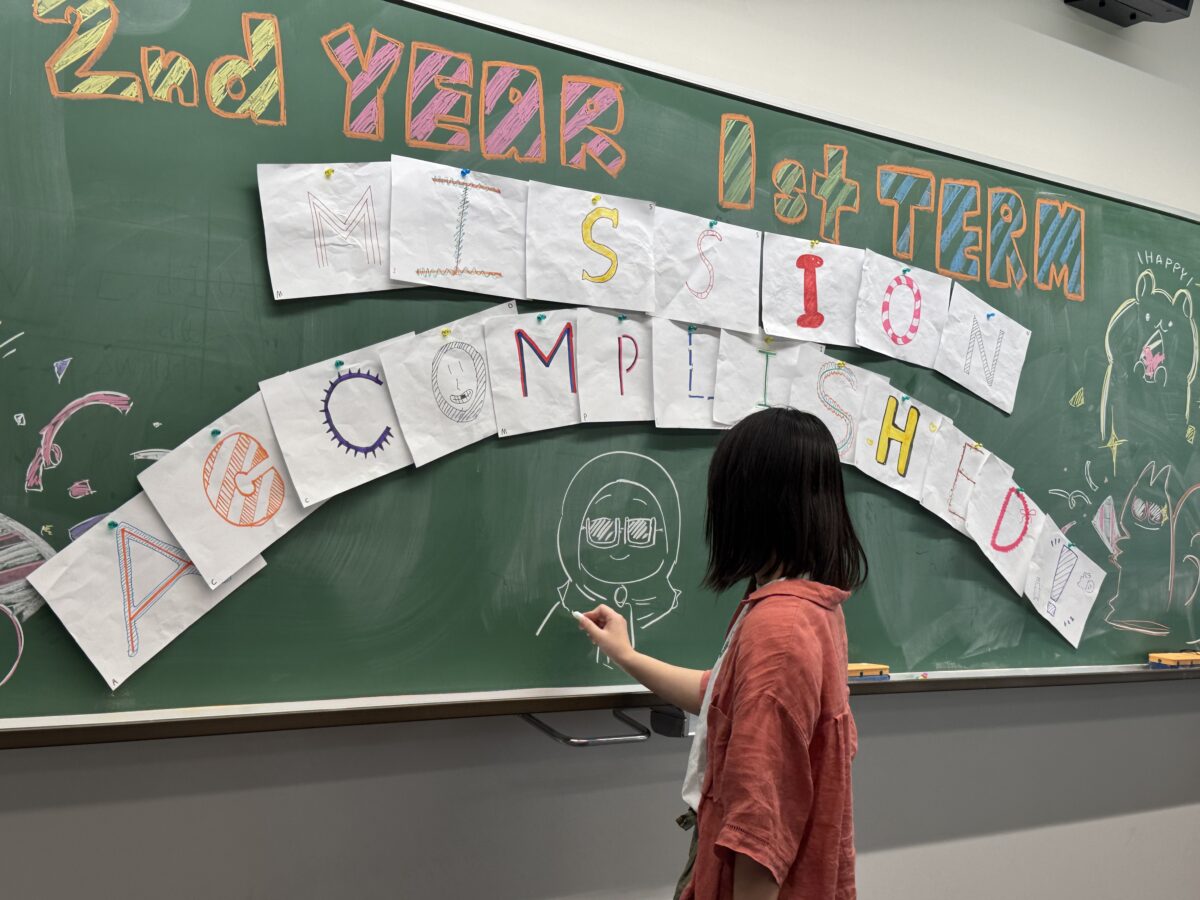 2nd YEAR 1st TERM
MISSION
ACCOMPLISHED!
HAPPY!